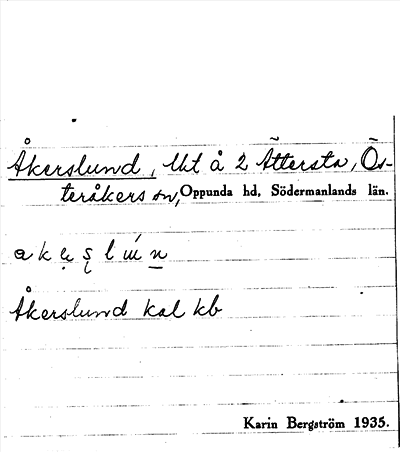 Åkerslund, lht å 2 Ättersta, Ös-
teråkers sn, Oppunda hd, Södermanlands län.
Åkerslund kal kb
Karin Bergström 1935.